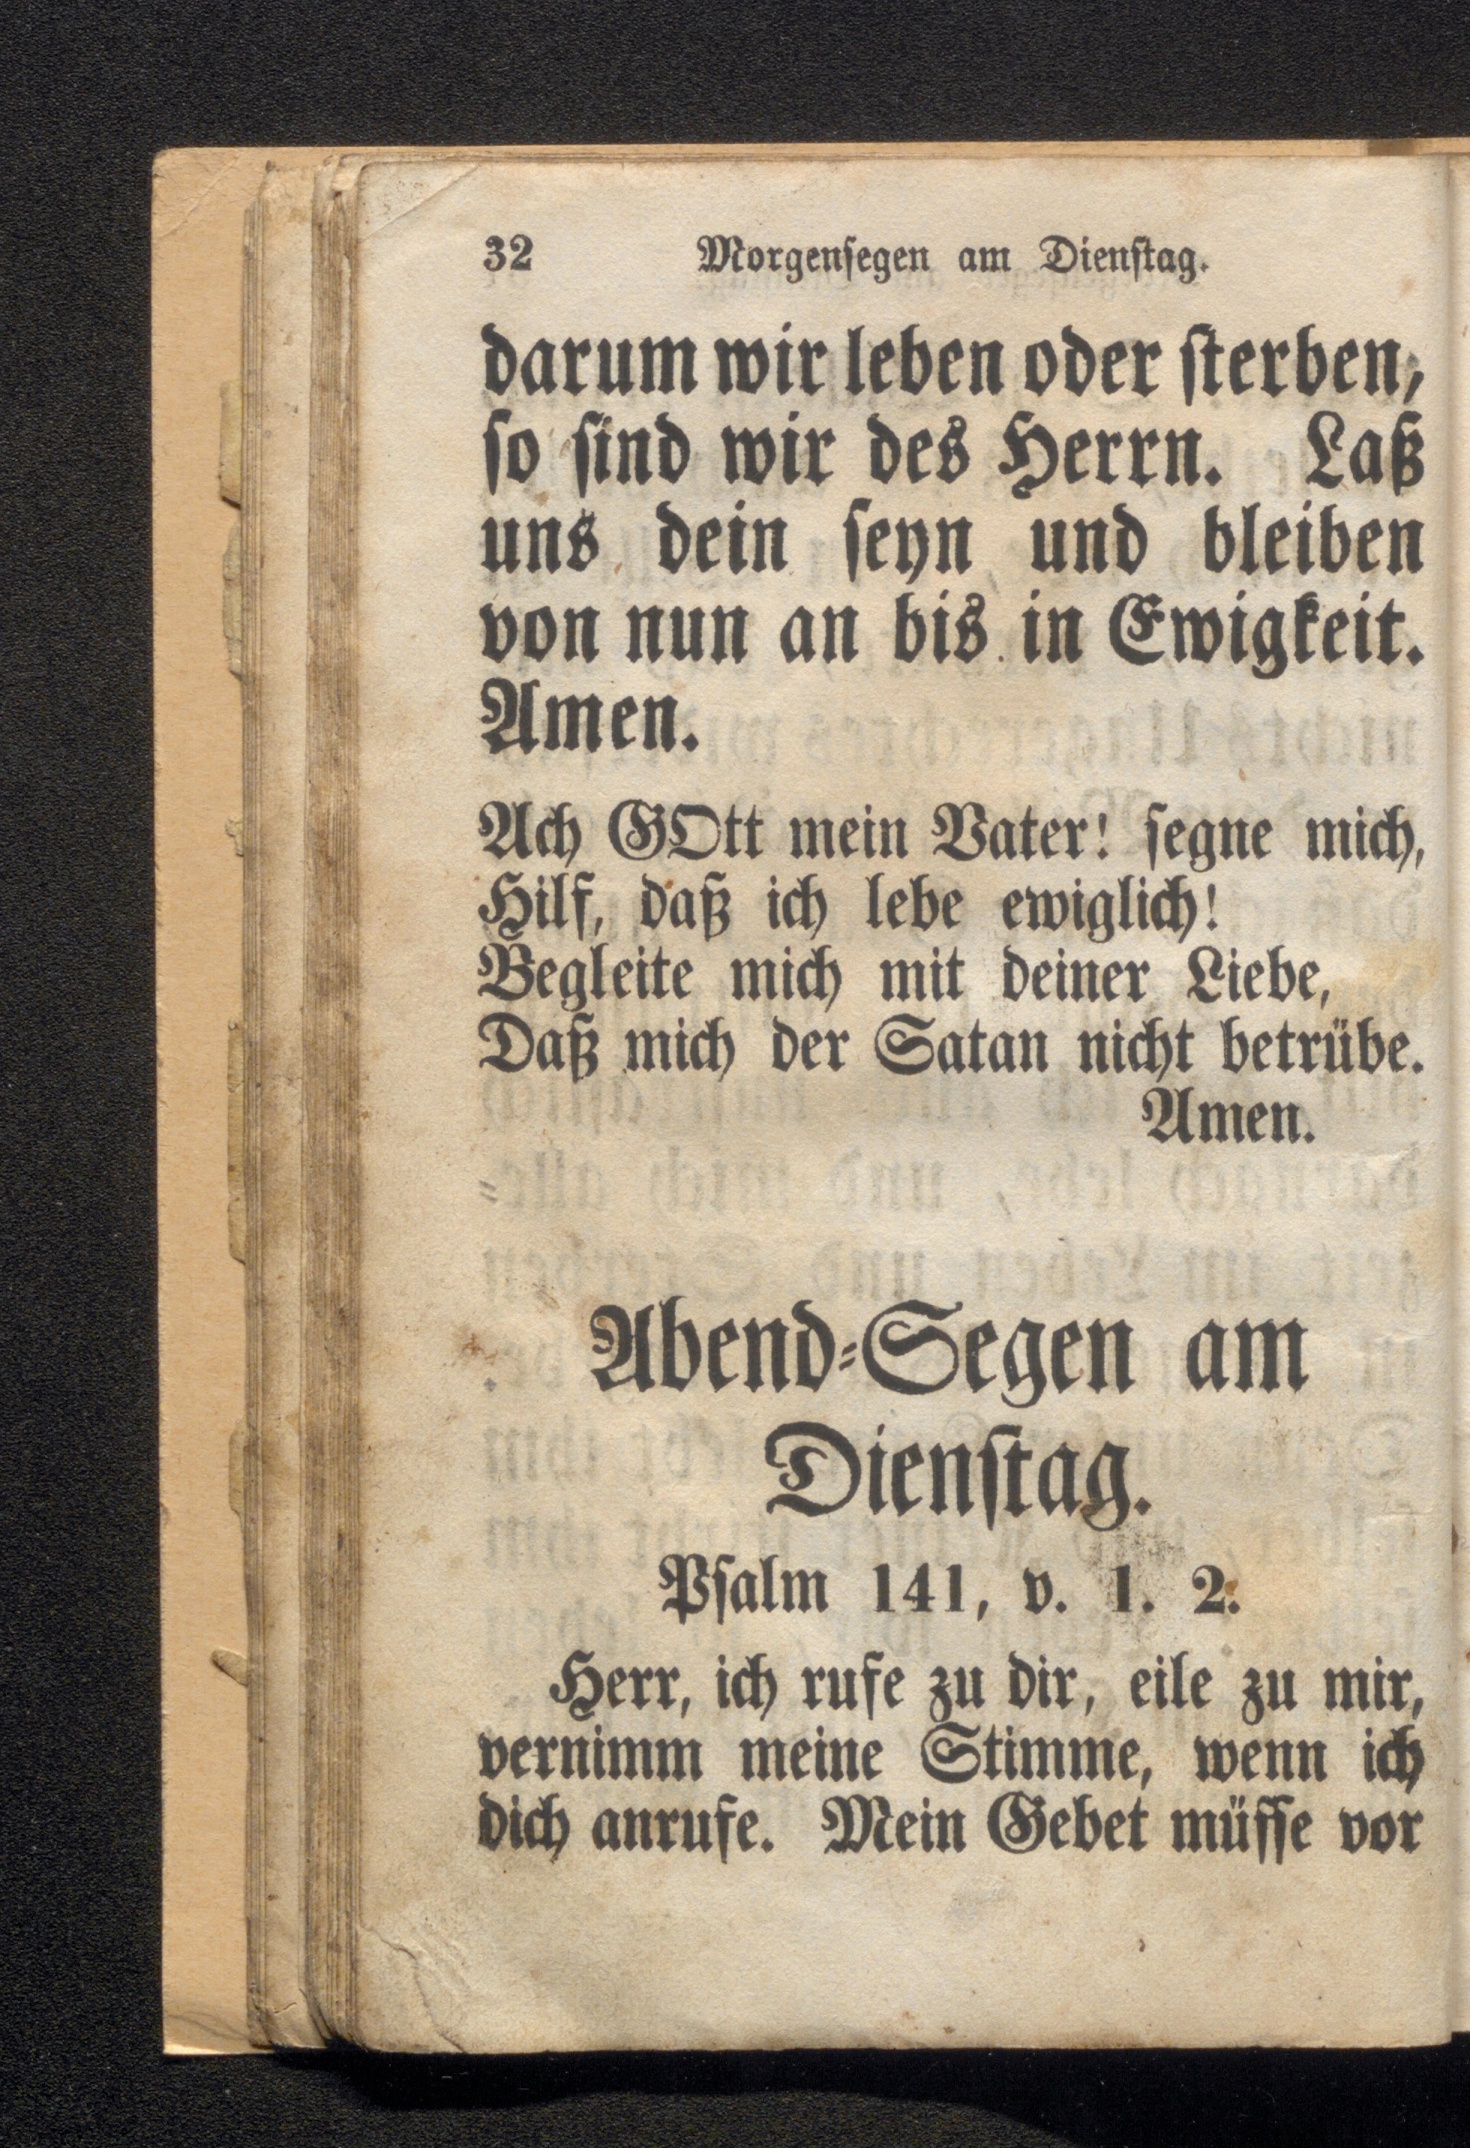 32 Morgensegen am Dienstag.
darum wir leben oder sterben,
so sind wir des Herrn. Laß
uns dein seyn und bleiben
von nun an bis in Ewigkeit.
Amen.
Ach GOtt mein Vater! segne mich,
Hilf, daß ich lebe ewiglich!
Begleite mich mit deiner Liebe,
Daß mich der Satan nicht betrübe.
Amen.
Abend-Segen am
Dienstag.
Psalm 141, v. 1. 2.
Herr, ich rufe zu dir, eile zu mir,
vernimm meine Stimme, wenn ich
dich anrufe. Mein Gebet müsse vor